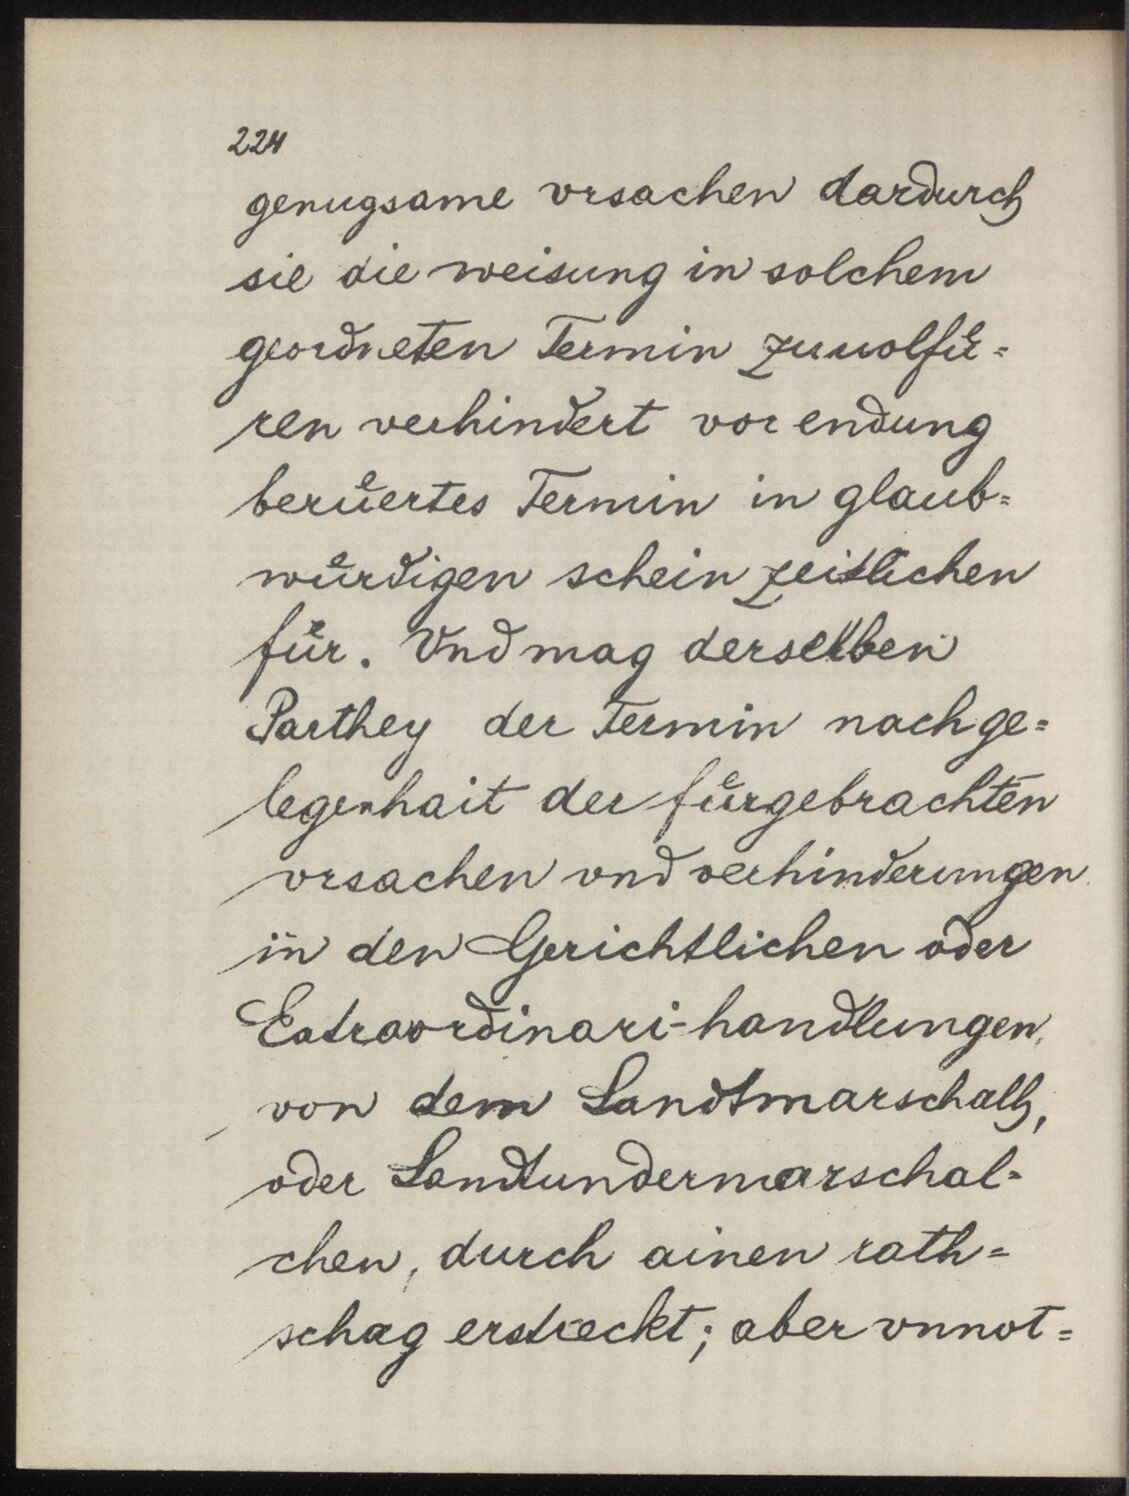 224
genugsame vrsachen dardurch
sie die weisung in solchem
geordneten Termin zuuolfüͤ=
ren verhindert vor endung
beruͤertes Termin in glaub=
wuͤrdigen schein zeitlichen
fuͤr. Vnd mag derselben
Parthey der Termin nach ge=
legenhait der fuͤrgebrachten
vrsachen vnd verhinderungen
in den Gerichtlichen oder
Extraordinari-handlungen,
von dem Landtmarschalh,
oder Landtundermarschal=
chen, durch ainen rath=
schag erstreckt; aber vnnot=